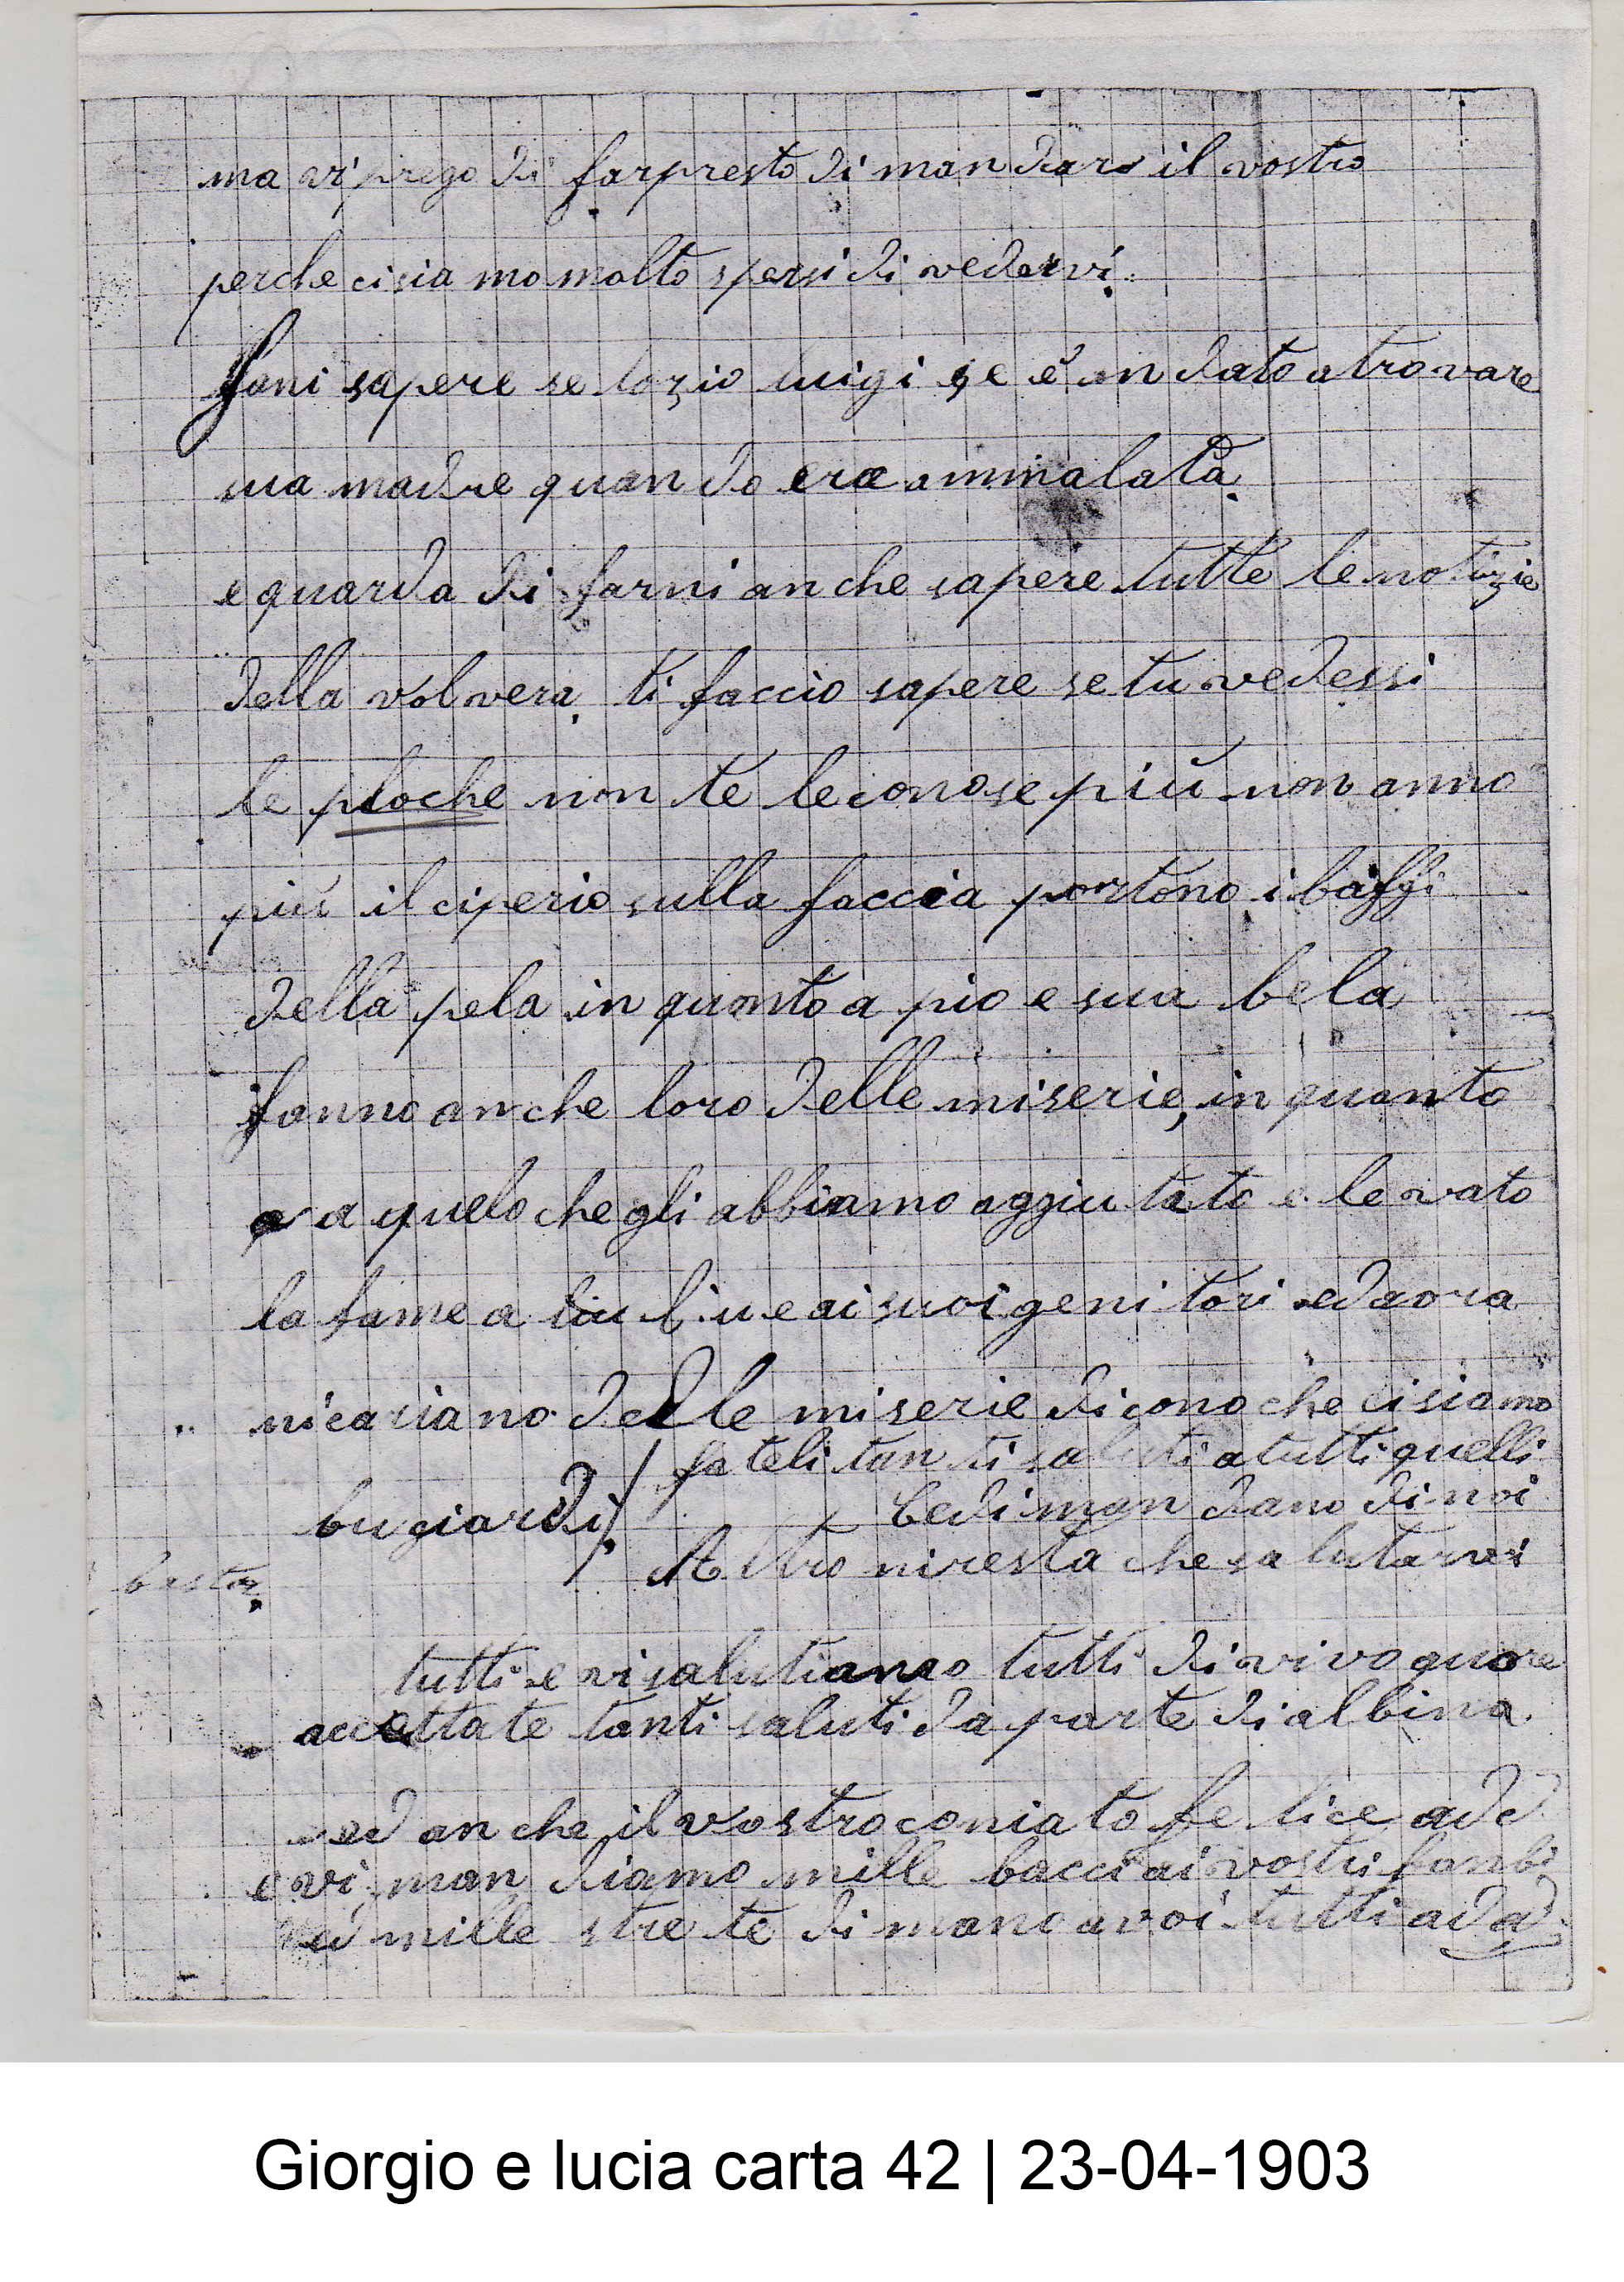 ma vi prego di far presto di mandare il vostro
perche ci sia mo molto spersi di vedervi
fani sapere se lo zio luigi se é andato a trovare
sua madre quando era ammalata
e guarda di farni anche sapere tutte le notizie
della volvera ti faccio sapere se tu vedessi
le ploche non te le conose più non anno
più il ciperio sulla faccia portono i baffi
della pela in quanto a pio e sua bela
fanno anche loro delle miserie, in quanto
a quelo che gli abbiamo aggiutato e levato
la fame a e ai suoi genitori ed aora
delle miserie dicono che ci siamo
bugiardi
fateli tanti saluti a tutti quelli
cedi mandano di noi
basta
Altro niresta che salutarvi
tutti e vi salutiamo tutti di vivo quore
accettate tanti saluti da parte di albina
ed anche il vostro coniato felice add
e vi mandiamo mille bacci ai vostri
mille strete di mano a voi tutti adad
Giorgio e lucia carta 42 | 23-04-1903